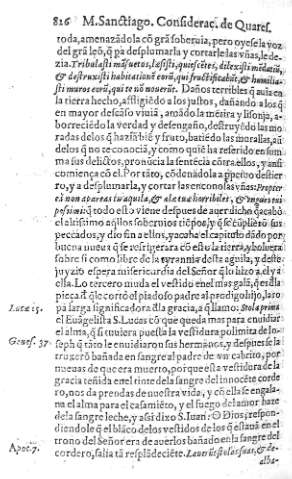 816 M. Sanctiago. Consideraç. de Quares.
roda, amenazádola cō grā soberuia, pero oyese la voz
del grā leō, q̄ pa desplumarla y cortarle las vñas, le de-
zia. Tribulasti māsuetos, læsisti, quiescētes, dilexisti mēdaciū,
& destruxisti habitationē eorū, qui fructificabāt, & humilia-
sti muros eorū, qui te nō nouerūt. Daños terribles q̄ auia en
la tierra hecho, afligiēdo a los justos, dañando a los q̄
en mayor descāso viuiā, amādo la mētira y lisonja, a-
borreciēdo la verdad y desengaño, destruyēdo las mo
radas de los q̄ haziā biē y fruto, batiēdo las murallas, aū
de los q̄ no te conociā, y como quiē ha referido en suma
sus delictos, pronūcia la sentēcia cōtra ellos, y ansi
comiença cō el. Por tāto, cōdenādola a perpetuo destier
ro, y a desplumarla, y cortar las enconosas vñas: Propter
ei non apareas tu aquila, & alæ tuæ horribiles, & ungues tui
pessimi: q̄ todo esto viene despues de auer dicho q̄ acabó
el altissimo aq̄llos soberuios tiēpos, y q̄ se cūpliero sus
peccados, y dio fin a ellos, y acaba el capitulo dādo por
buena nueua q̄ se refrigerara cō esto la tierra, y boluera
sobre si como libre de la tyrannia desta aguila, y deste
juyzio espera misericordia del Señor q̄ lo hizo a el y a
ella. Lo tercero muda el vestido en el mas galā, q̄ es di la
pieça d̄l q̄ le cortó el piadoso padre al prodigo hijo, laro
Lucæ 15. pa larga significadora d̄ la gracia, a q̄ llamo Stola prima
el Euāgelista S. Lucas: o que queda mas para enuidiar
el alma, q̄ si tuuiera puesta la vestidura polimita de Io-
Genes. 37 seph q̄ tāto le enuidiaron sus hermanos, y despues se la
truxerō bañada en sangre al padre de vn cabrito, por
nueuas de que era muerto, porque esta vestidura de la
gracia teñida en el tinte dela sangre del innocēte corde
ro, nos da prendas de nuestra vida, y cō ella se engala-
na el alma para el casamiēto, y el fuego del amor haze
dela sangre leche, y assi dixo S. Iuan: O Dios, respon-
diendole q̄ el blāco de los vestidos de los q̄ estauā en el
trono del Señor era de auerlos bañado en la sangre del
Apoc. 7. cordero, salia tā resplādeciēte. Lauerūt stolas suas, & de
alba-